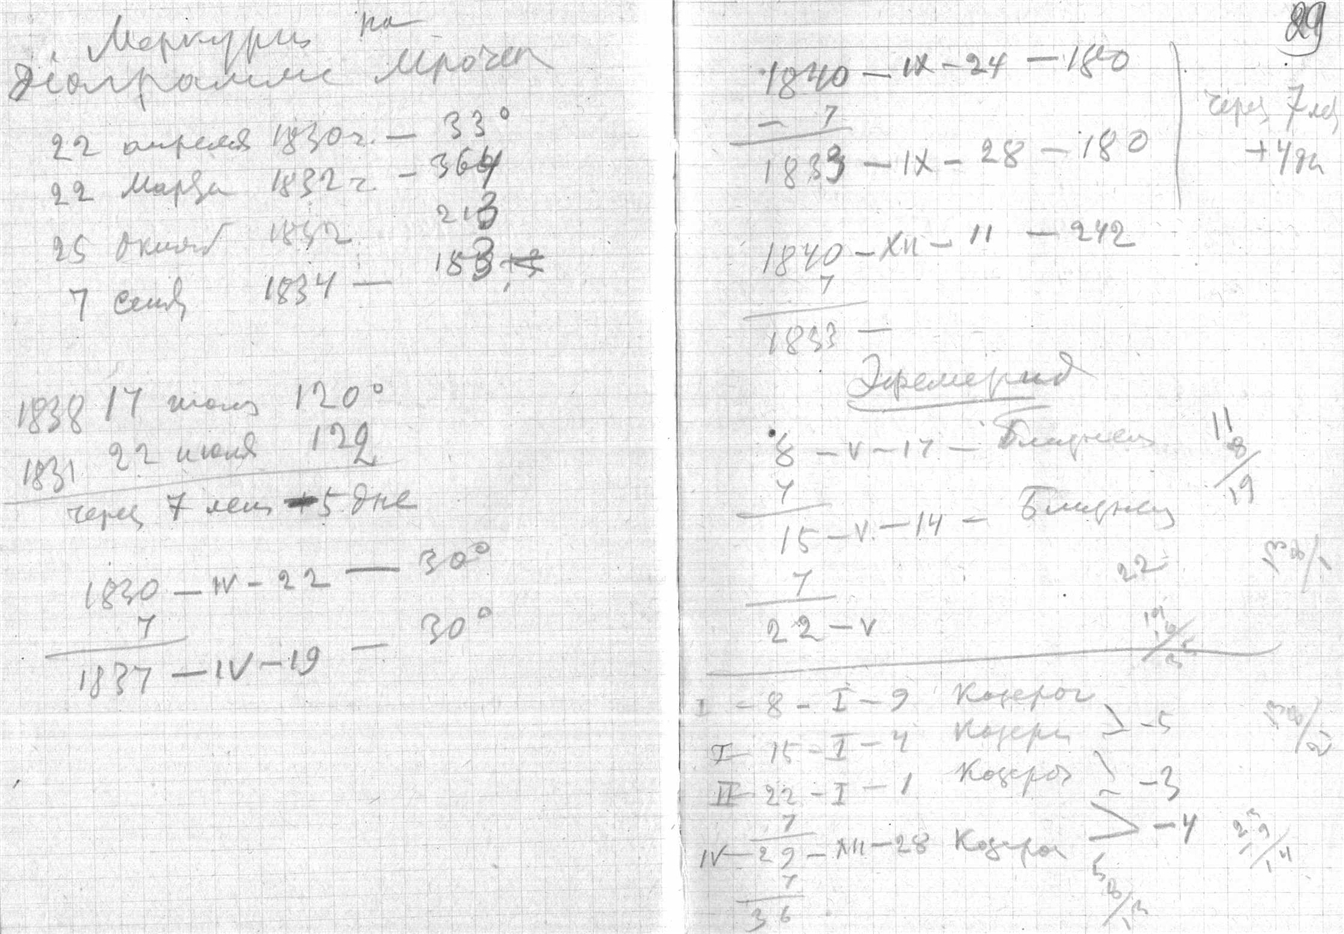 Меркурий на
діаграмме Мрочек
22 апреля 1830 г. — 33°
22 марта 1832 г. — 364
25 октяб 1832 213
7 сент 1834 — 183
1838 17 июля 120°
1831 22 июля 122
через 7 лет +5 дне
1830 — IV — 22 — 30°
7
1837 — IV — 19 — 30°
29
1840 — IX — 24 — 180
— 7
1833 — IX — 28 — 180
через 7 лет
+ 4 дн
1840 — XII — 11 — 242
7
1833 —
Эфемерид
8 — V — 17 — Близнец
7
15 — V — 14 — Близнец
7
22 — V
11
8
19
22
I — 8 — I — 9 Козерог
II — 15 — I — 4 Козерог > — 5
III — 22 — I — 1 Козерог > — 3
7
IV — 29 — XII — 28 Козерог > — 4
7
36